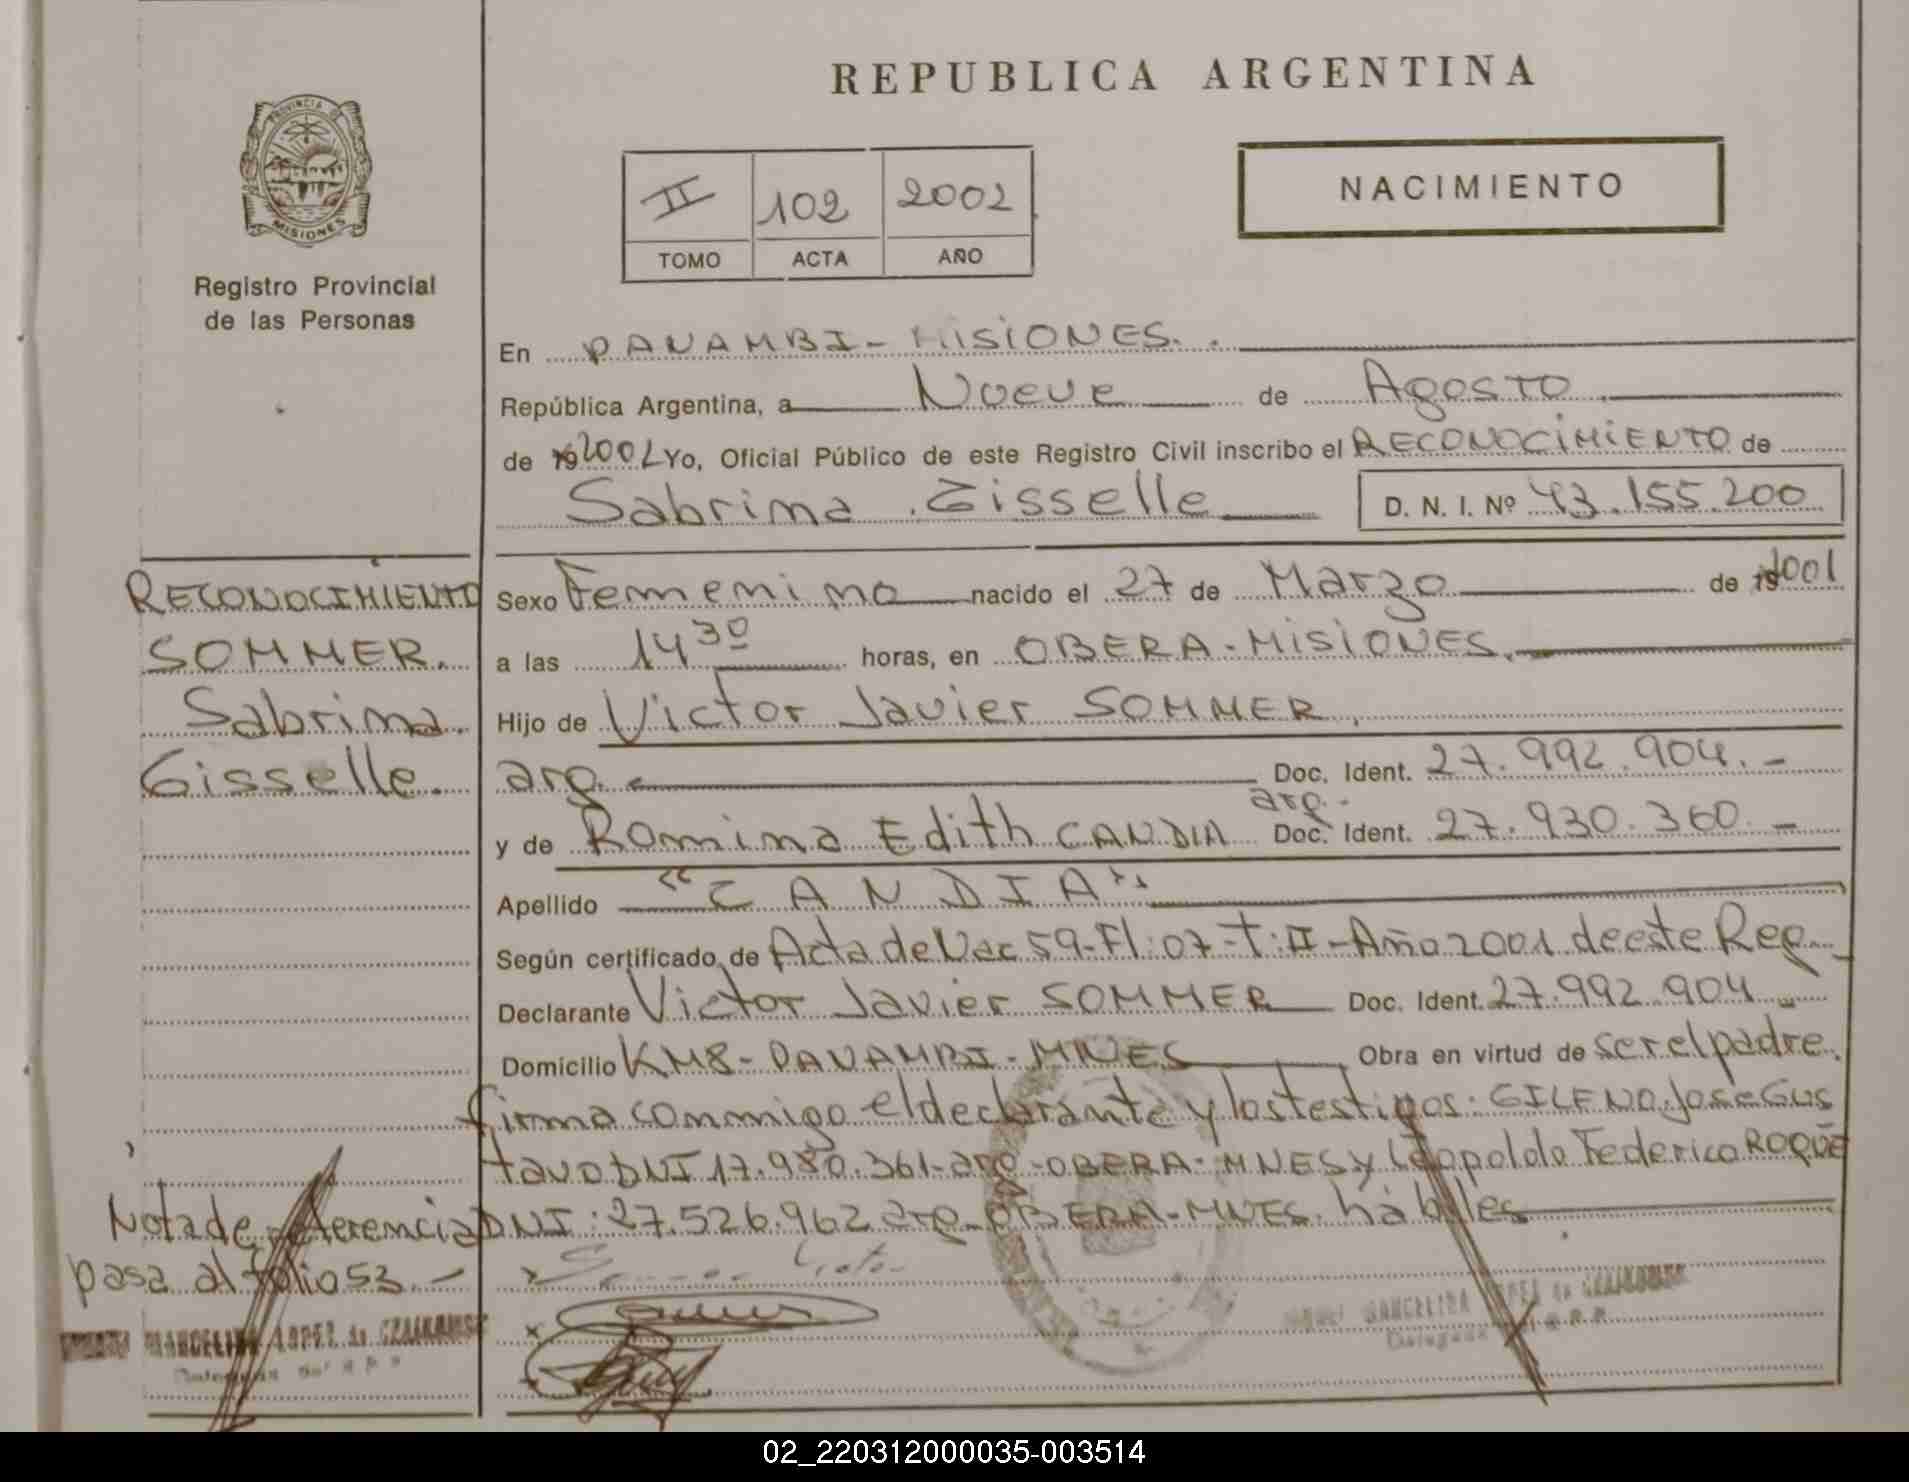 REPUBLICA ARGENTINA
PROVINCIA DE
MISIONES
Registro Provincial
de las Personas
II 102 2002
TOMO ACTA AÑO
NACIMIENTO
En PANAMBI - MISIONES.
República Argentina, a Nueve de Agosto
de 19 2002 Yo, Oficial Público de este Registro Civil inscribo el RECONOCIMIENTO de
Sabrina Gisselle D. N. I. Nº 43.155.200
RECONOCIMIENTO
SOMMER.
Sabrina.
Gisselle.
Sexo Femenino nacido el 27 de Marzo de 19 2001
a las 14 30 horas, en OBERA - MISIONES.
Hijo de Victor Javier SOMMER,
arg. Doc. Ident. 27.992.904.-
arg.-
y de Romina Edith CANDIA Doc. Ident. 27.930.360.-
Apellido "CANDIA"
Según certificado de Acta de Nac 59-Fl:07-T:II-Año 2001 de este Reg.
Declarante Victor Javier SOMMER Doc. Ident. 27.992.904
Domicilio KM8 - PANAMBI - MNES Obra en virtud de ser el padre.
firma conmigo el declarante y los testigos: GILENO José Gus
tavo DNI 17.980.361-arg-OBERA-MNES y Leopoldo Federico ROQUE
DNI: 27.526.962 arg-OBERA-MNES. hábiles
Nota de referencia
pasa al folio 53.-
MARCELINA LOPEZ de
MARCELINA LOPEZ de
02_220312000035-003514